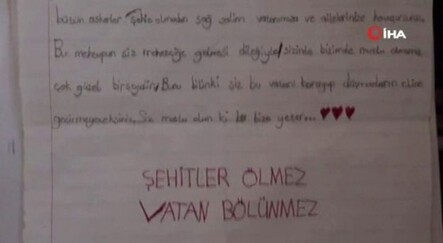 İHA
bütün askerler şehit olmadan sağ salim vatanımıza ve ailelerinize kavuşursunuz.
Bu mektupun siz mehmetçiğe gelmesi dileğiyle sizinle bizimde mutlu olmamız
çok güzel birşeydir. Bunu bilinki siz bu vatanı koruyup düşmanların eline
geçirmeyeceksiniz. Siz mutlu olun ki bu bize yeter...
ŞEHİTLER ÖLMEZ
VATAN BÖLÜNMEZ